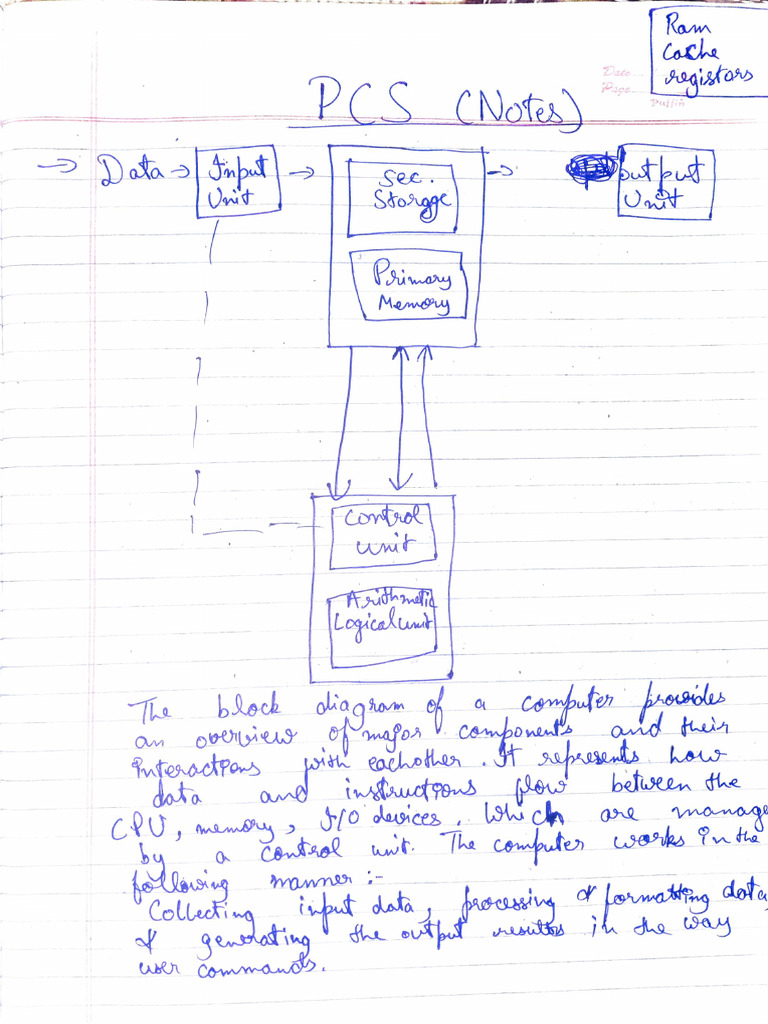 Ram
Cache
registors
Date
Page
PCS (Notes)
→ Data → Input Unit → Sec. Storgge → output Unit
Primary
Memory
Control
Unit
Arithmetic
Logical unit
The block diagram of a computer provides
an overview of major components and their
interactions with eachother. It represents how
data and instructions flow between the
CPU, memory, I/O devices, which are manage
by a control unit. The computer works in the
following manner :-
Collecting input data, processing & formatting data,
& generating the output results in the way
user commands.